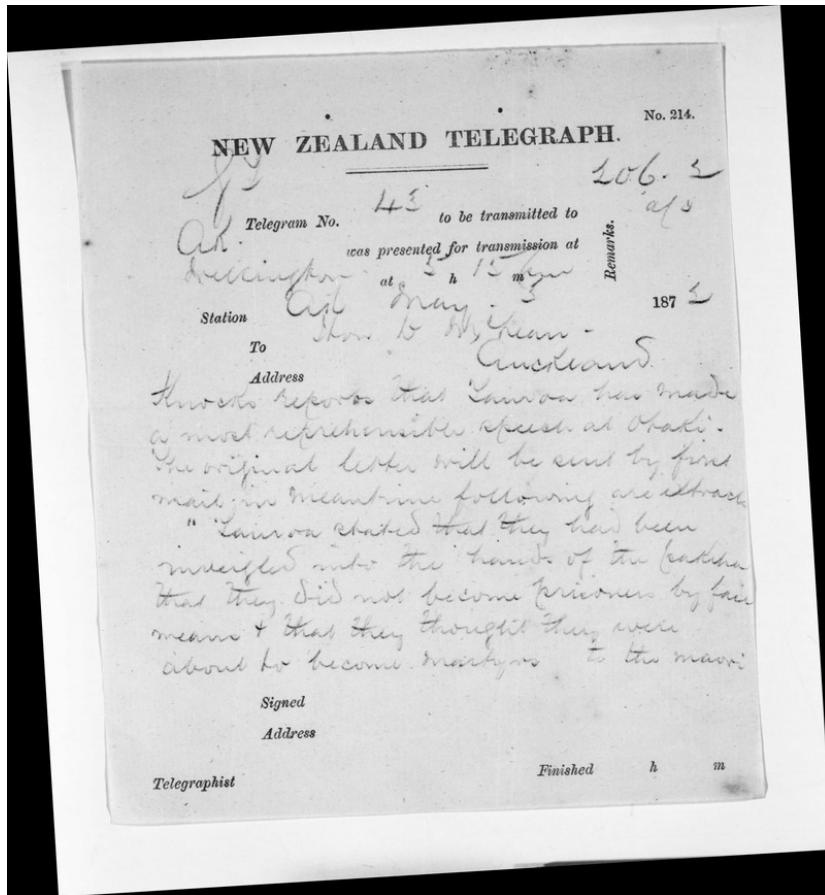 No. 214.
NEW ZEALAND TELEGRAPH.
206. 2
Telegram No. 43 to be transmitted to
Ak. was presented for transmission at
Remarks.
Wellington at 5 h 15 m pm
Station Ak May 3 1872
To Hon D McLean
Auckland
Address
Knocks reports that Tauroa has made
a most reprehensible speech at Otaki.
The original letter will be sent by first
mail, in meantime following are extracts
" Tauroa stated that they had been
inveigled into the hands of the pakeha
that they did not become prisoners by fair
means & that they thought they were
about to become martyrs to the maori
Signed
Address
Telegraphist
Finished h m